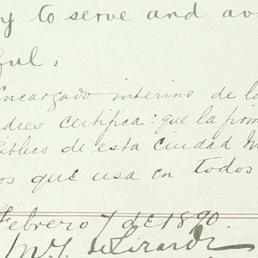 y to serve and av
ful,
Encargado interino de la
dres certifica: que la firm
ublico de esta ciudad
os que usa en todos
Febrero 7 de 1890.